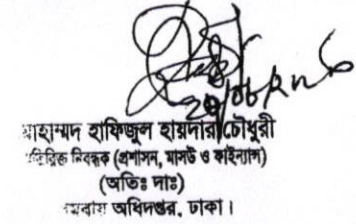 মোহাম্মদ হাফিজুল হায়দার চৌধুরী
অতিরিক্ত নিবন্ধক (প্রশাসন, মাসউ ও ফাইন্যান্স)
(অতিঃ দাঃ)
সমবায় অধিদপ্তর, ঢাকা।